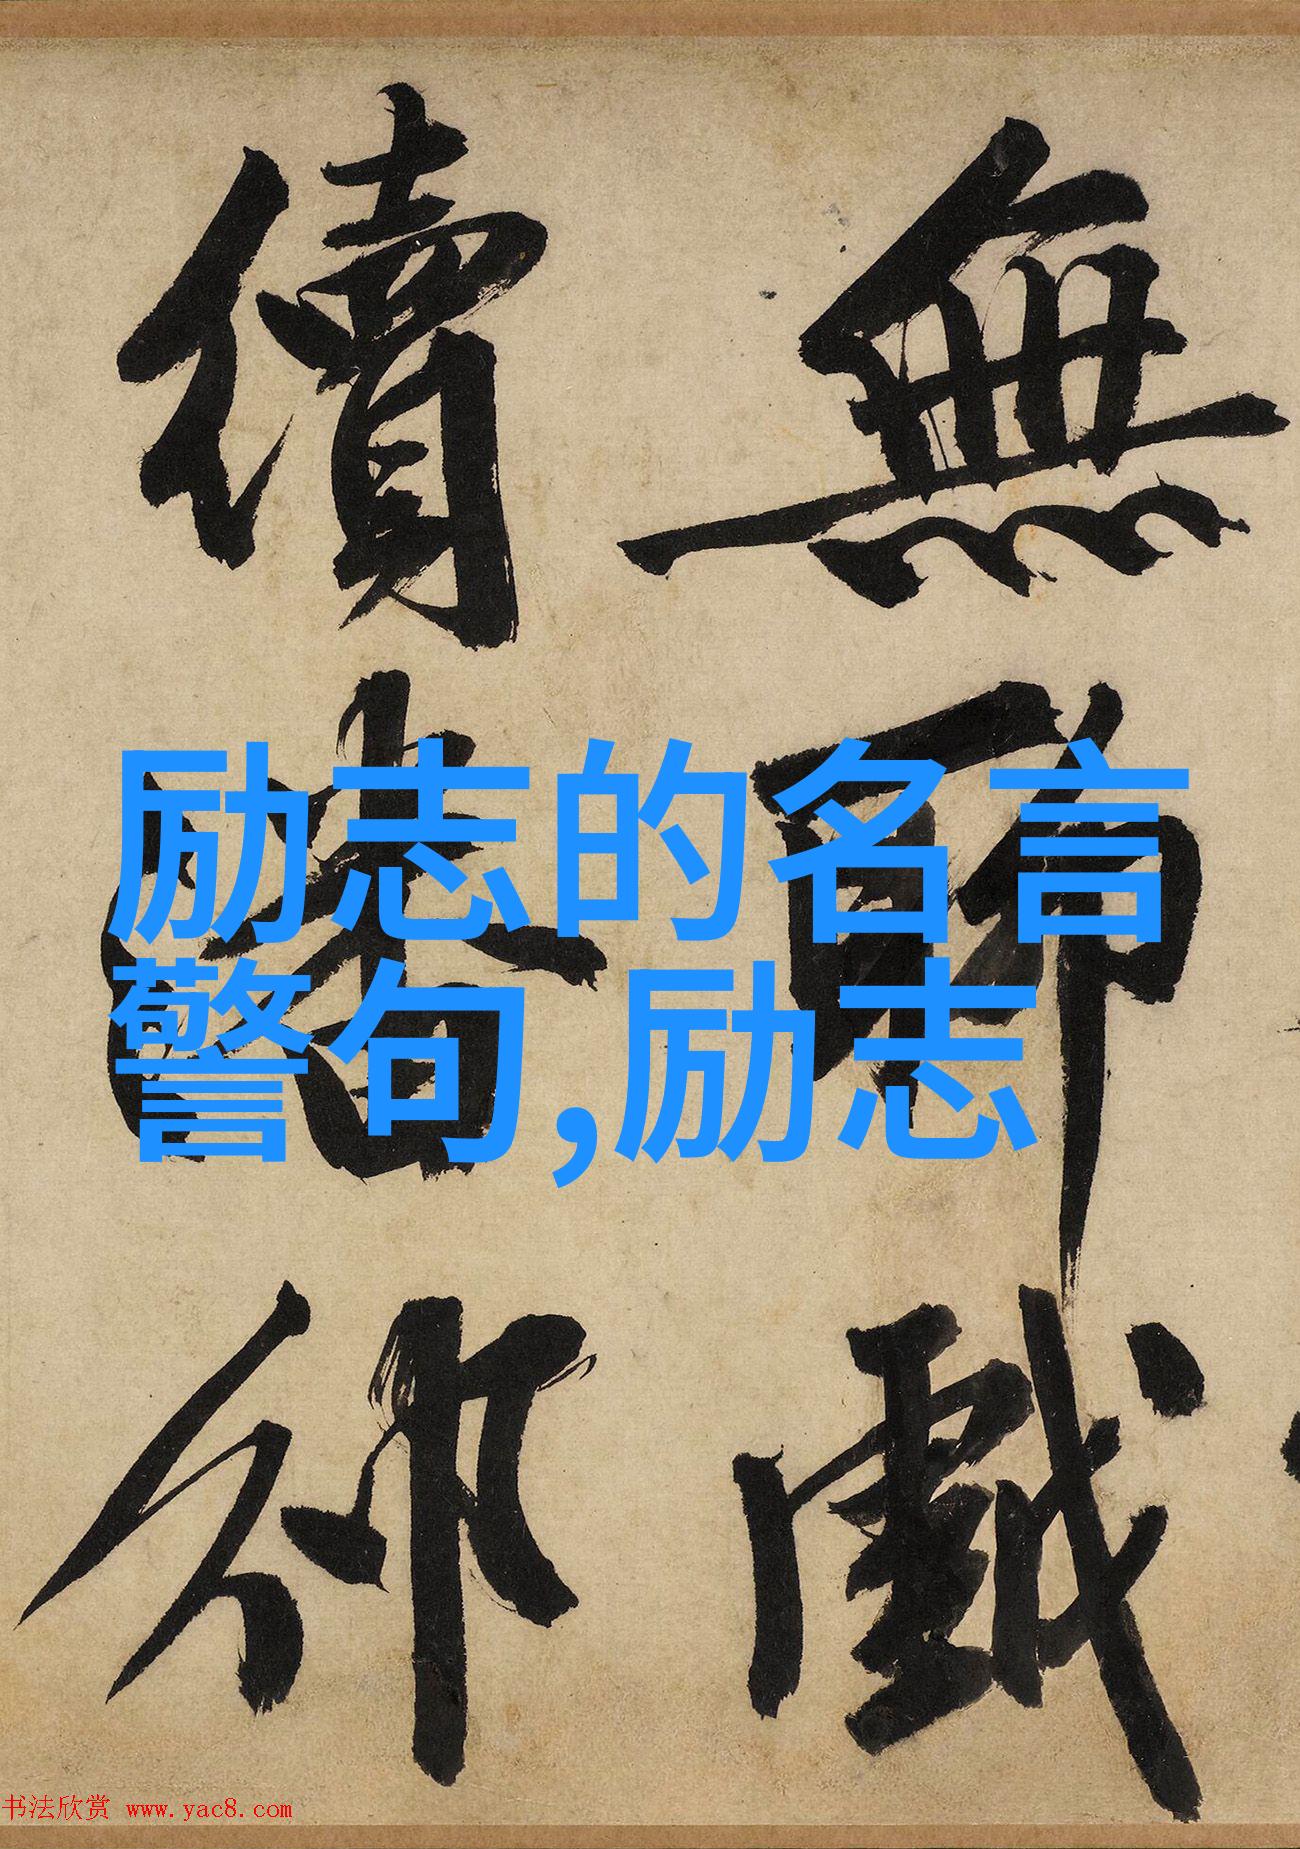 無聊戲
續
励志的名言
警句,励志
书法欣赏 www.yac8.com